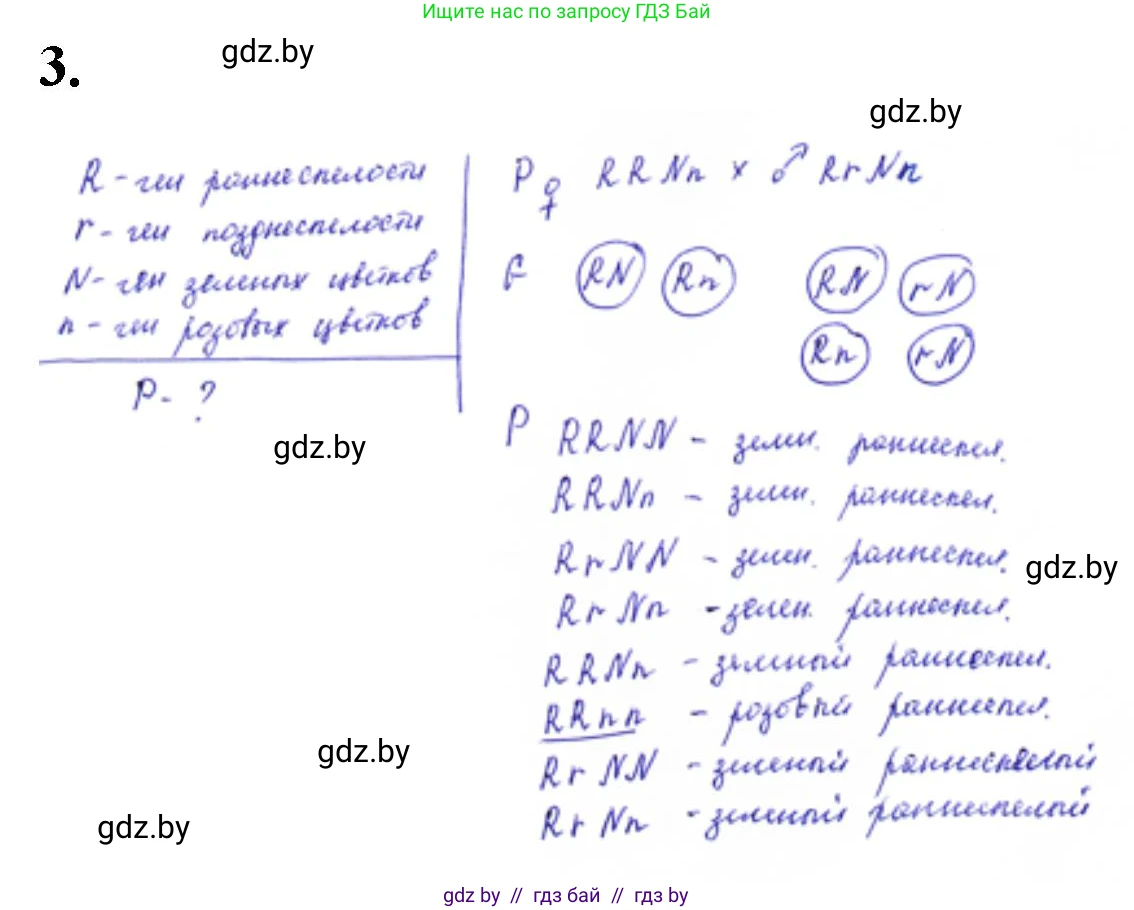 Ищите нас по запросу ГДЗ Бай
3.
gdz.by
gdz.by
R - ген раннеспелости
r - ген позднеспелости
N - ген зеленых цветков
n - ген розовых цветков
P - ?
gdz.by
P ♀ RRNn × ♂ RrNn
G RN Rn RN rN
Rn rN
P RRNN - зелен. раннеспел.
RRNn - зелен. раннеспел.
RrNN - зелен. раннеспел.
gdz.by
RrNn - зелен. раннеспел.
RRNn - зеленый раннеспел.
RRnn - розовый раннеспел.
gdz.by
RrNN - зеленый раннеспелый
RrNn - зеленый раннеспелый
gdz.by
gdz by // гдз бай // гдз by